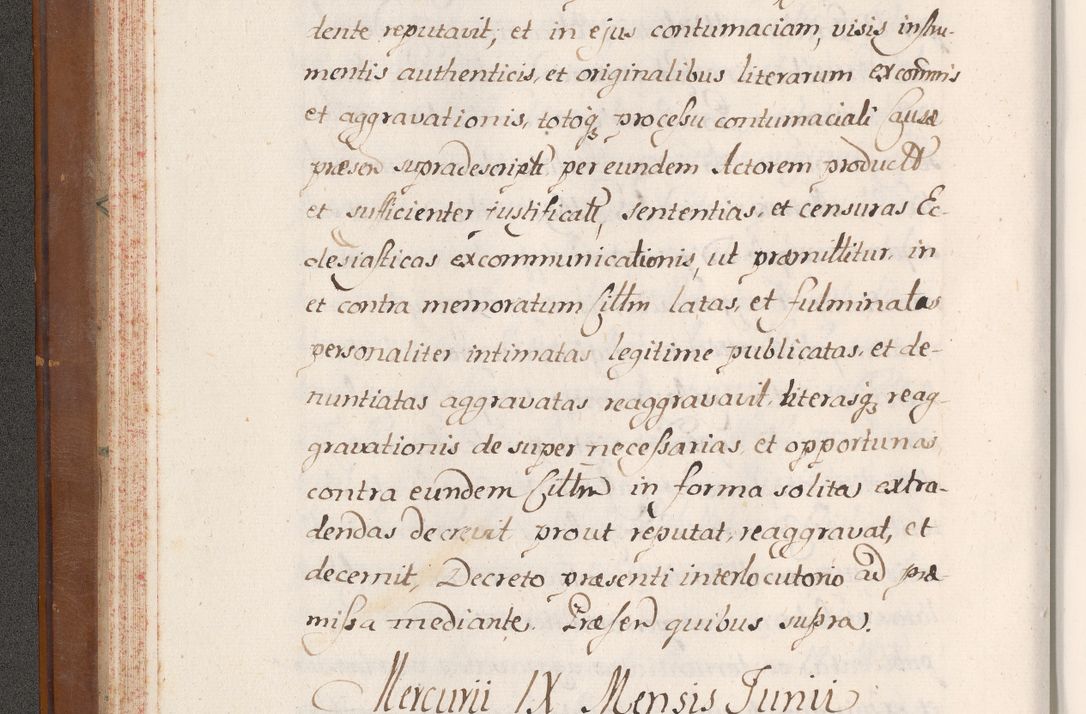 dente reputavit, et in ejus contumaciam, visis instru-
mentis authenticis, et originalibus literarum excommis
et aggravationis, totoq₃ processu contumaciali Causæ
præsen supradescriptt per eundem Actorem productt
et sufficienter justificatt, sententias, et censuras Ec-
clesiasticas excommunicationis, ut præmittitur, in
et contra memoratum Cittm latas, et fulminatas
personaliter intimatas, legitime publicatas, et de-
nuntiatas aggravatas reaggravavit, literasq₃ reag-
gravationis desuper necessarias, et opportunas
contra eundem Cittm in forma solita extra-
dendas decrevit prout reputat, reaggravat, et
decernit, Decreto præsenti interlocutorio ad præ-
missa mediante. Præsen quibus supra.
Mercurii IX Mensis Junii